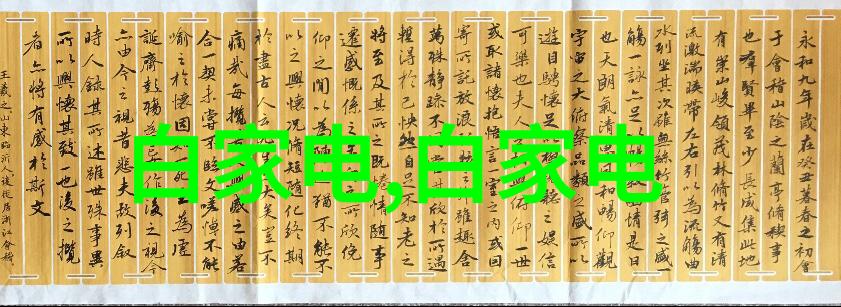 白家电,白家电
永和九年歲在癸丑暮春之初會
于會稽山陰之蘭亭脩稧事
也羣賢畢至少長咸集此地
有崇山峻領茂林脩竹又有清
流激湍暎帶左右引以為流觴曲
水列坐其次雖無絲竹管弦之盛一
觴一詠亦足以敘幽情是日
也天朗氣清惠和暢仰觀
宇宙之大俯察品類之盛所以
遊目騁懷足以聽之娛信
可樂也夫人俯仰一世
或取諸懷抱悟言一室之內或因
寄所託放浪雖趣舍
萬殊靜躁不欣於所遇
暫得於己快然自足不知老之
將至及其所之既惓情隨事
遷感慨係之所欣俛
仰之間以為猶不能不
以之興懷況脩短隨化終期
於盡古人云大矣豈不
痛哉每攬興感之由若
合一契未嘗不臨文嗟悼不能
喻之於懷固知為虛
誕齊彭殤為妄作後之視今
亦由今之視昔悲夫故列敘
時人錄其所述雖世殊事異
所以興懷其致一也後之攬
者亦將有感於斯文
王羲之山東臨沂人後徙居浙江會稽